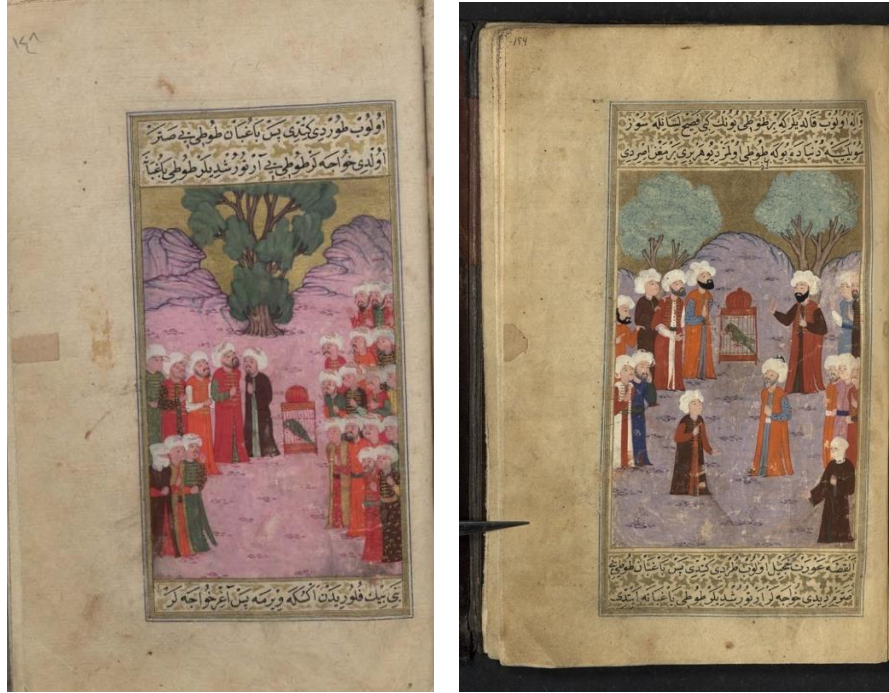 ١٤٨
اولوب طوردی کندی پس باغبان طوطی یی صتر
اولدی خواجه لر طوطی یی آرتورشدیلر طوطی باغبانه
یتی بیك فلوریدن اکسکه ویرمه پس آغر خواجه لر
اوله اولوب قالدیلر که بر طوطی بونك کبی فصیح لسانله سوز
سویلیه دنیاده بو که طوطی اولمز دیو هر بری برمغن اصردی
القصه عورت خجیل اولوب طوردی کندی پس باغبان طوطی یی
صترم دیدی خواجه لر آرتورشدیلر طوطی باغبانه ایتدی